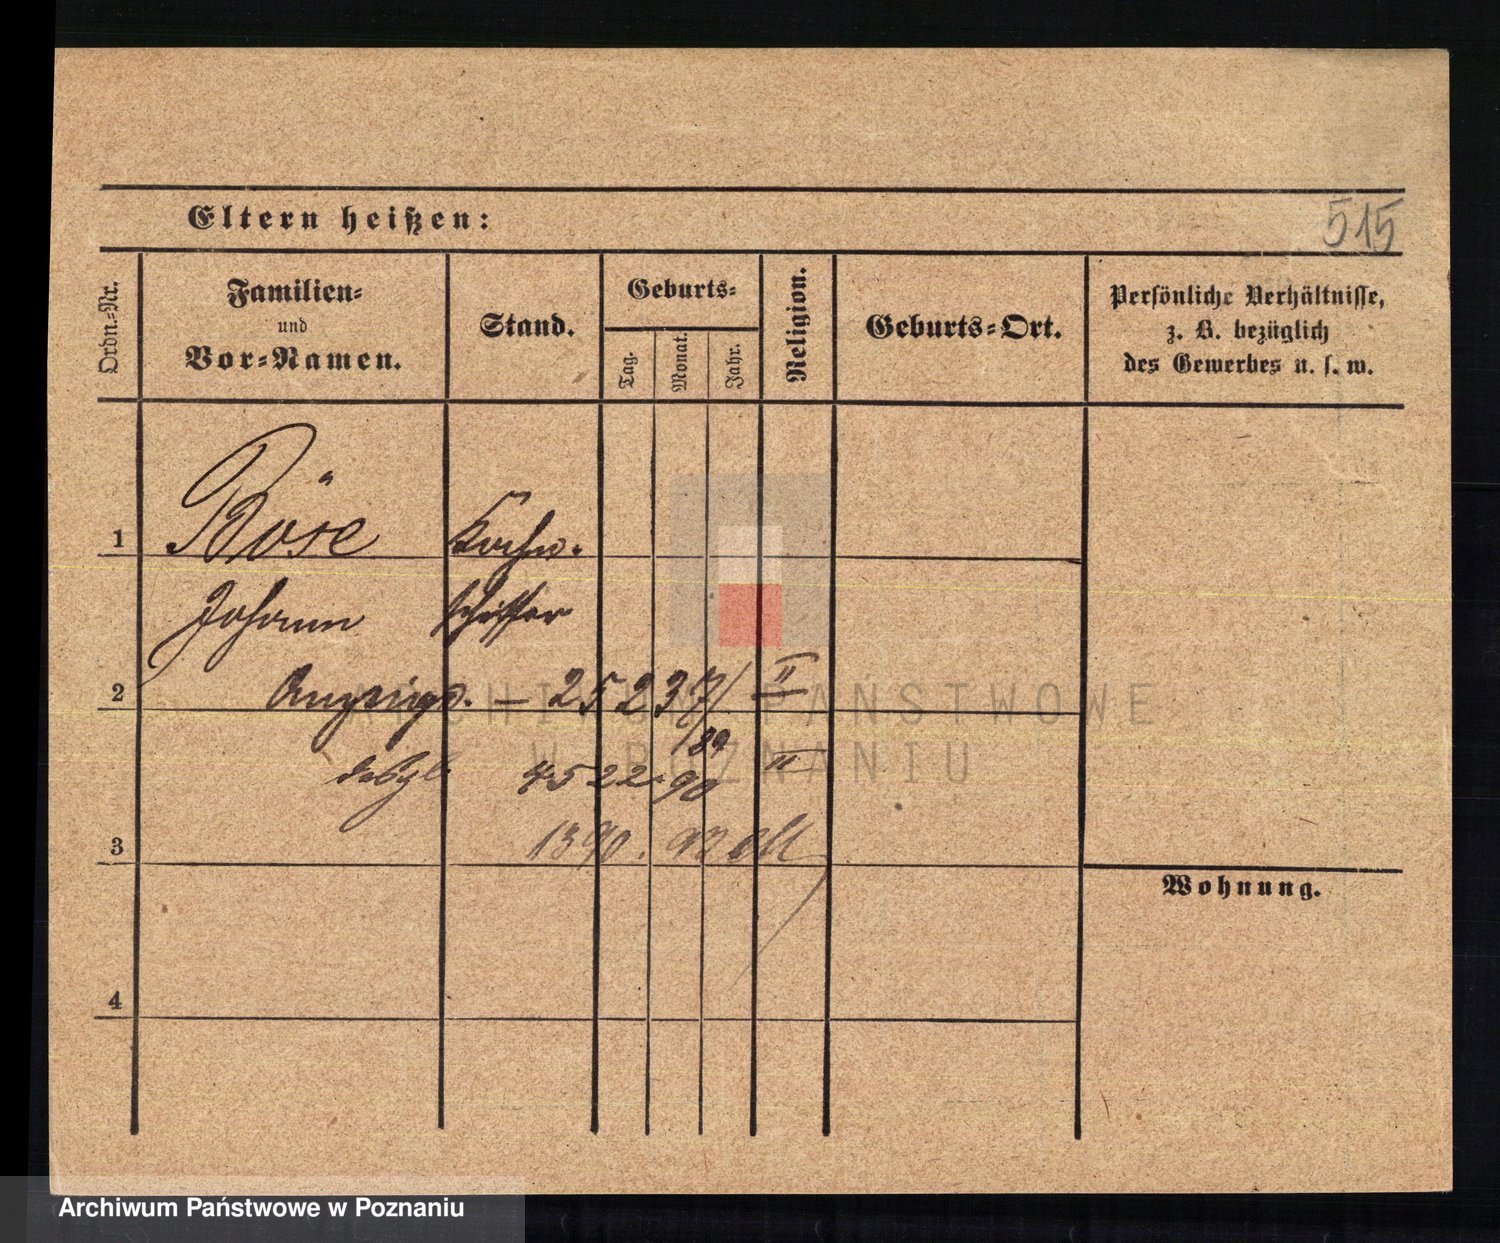 Eltern heißen:
515
Ordn.-Nr.
Familien-
und
Vor-Namen.
Stand.
Geburts-
Tag.
Monat.
Jahr.
Religion.
Geburts-Ort.
Persönliche Verhältnisse,
z. B. bezüglich
des Gewerbes u. s. w.
1
Böse
Johann
2
2523
II
/89
4522
90
II
3
1390.
Wohnung.
4
ARCHIWUM PAŃSTWOWE
W POZNANIU
Archiwum Państwowe w Poznaniu